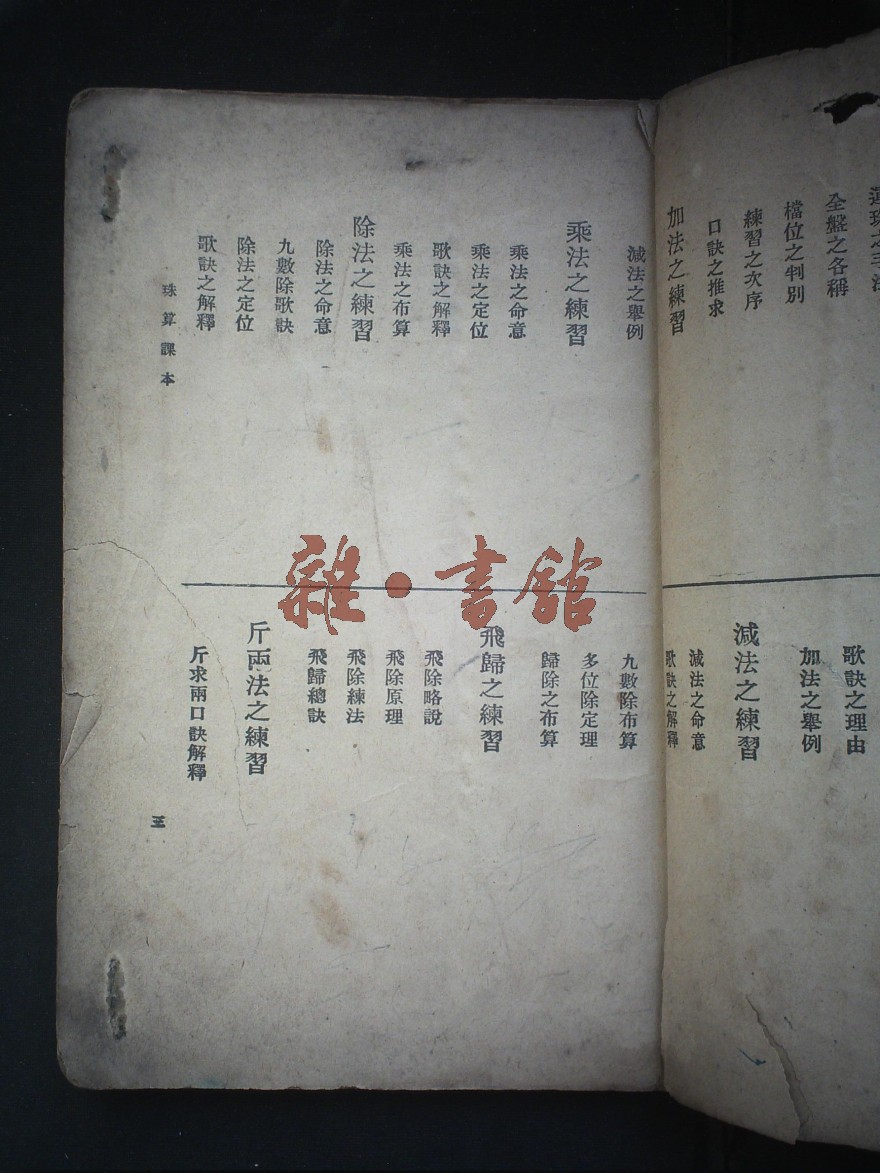 全盤之各稱
檔位之判別
練習之次序
口訣之推求
加法之練習
歌訣之理由
加法之舉例
減法之練習
減法之命意
歌訣之解釋
減法之舉例
乘法之練習
乘法之命意
乘法之定位
歌訣之解釋
乘法之布算
除法之練習
除法之命意
九數除歌訣
除法之定位
歌訣之解釋
九數除布算
多位除定理
歸除之布算
飛歸之練習
飛除略說
飛除原理
飛除練法
飛歸總訣
斤兩法之練習
斤求兩口訣解釋
珠算課本
三
雜·書館